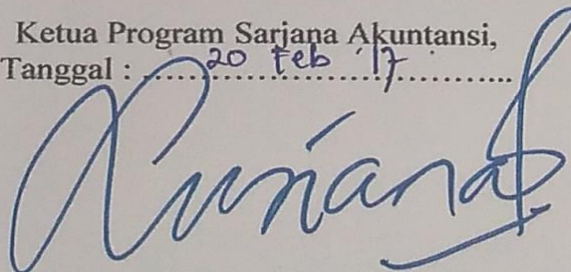 Ketua Program Sarjana Akuntansi,
Tanggal : 20 Feb '17